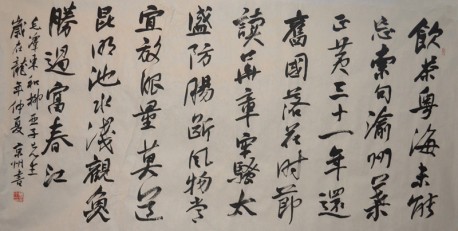 飲茶粵海未能
忘索句渝州葉
正黃三十一年還
舊國落花时節
讀華章牢騷太
盛防腸斷风物長
宜放眼量莫道
昆明池水淺觀魚
勝過富春江
毛澤東和柳亞子先生
歲在龍年仲夏 京州書